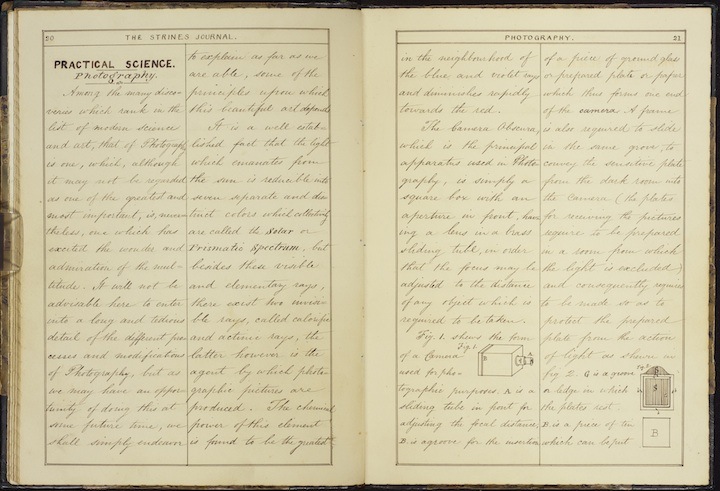 20
THE STRINES JOURNAL.
PRACTICAL SCIENCE.
Photography.
Among the many disco-
veries which rank in the
list of modern science
and art, that of Photography
is one, which, although
it may not be regarded
as one of the greatest and
most important, is, never-
theless, one which has
excited the wonder and
admiration of the mul-
titude. It will not be
advisable here to enter
into a long and tedious
detail of the different pro-
cesses and modifications
of Photography, but as
we may have an oppor-
tunity of doing this at
some future time, we
shall simply endeavor
to explain as far as we
are able, some of the
principles upon which
this beautiful art depends
It is a well estab-
lished fact that the light
which emanates from
the sun is reducible into
seven separate and dis-
tinct colors which collectively
are called the Solar or
Prismatic Spectrum, but
besides these visible
and elementary rays,
there exist two invisi-
ble rays, called calorific
and actinic rays, the
latter however is the
agent by which photo-
graphic pictures are
produced. The chemical
power of this element
is found to be the greatest
PHOTOGRAPHY.
21
in the neighbourhood of
the blue and violet rays
and diminishes rapidly
towards the red.
The Camera Obscura,
which is the principal
apparatus used in Photo-
graphy, is simply a
square box with an
aperture in front, hav-
ing a lens in a brass
sliding tube, in order
that the focus may be
adjusted to the distance
of any object which is
required to be taken.
Fig. 1. shews the form
of a Camera
used for pho-
tographic purposes. A is a
sliding tube in front for
adjusting the focal distance,
B. is a groove for the insertion
Fig. 1
B
A
of a piece of ground glass
or prepared plate or paper
which thus forms one end
of the camera. A frame
is also required to slide
in the same grove, to
convey the sensitive plate
from the dark room into
the Camera (the plates
for receiving the pictures
require to be prepared
in a room from which
the light is excluded)
and consequently requires
to be made so as to
protect the prepared
plate from the action
of light as shewn in
fig 2. G is a groove
or ledge in which
the plates rest
B. is a piece of tin
which can be put
Fig. 2
S
B